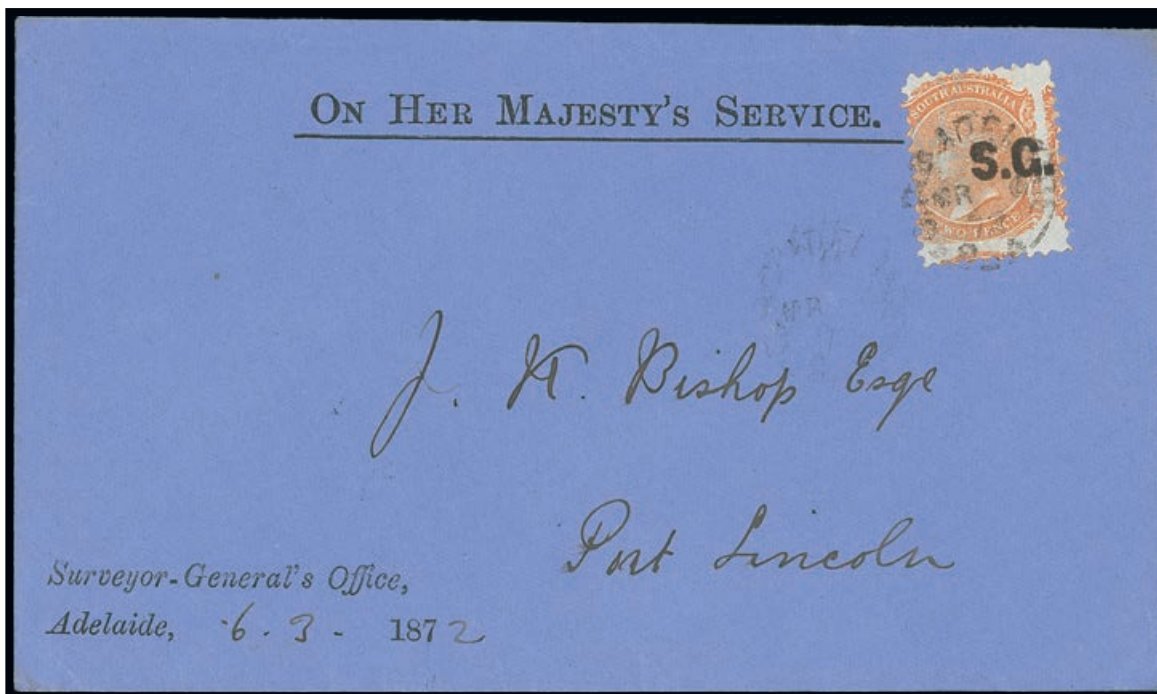 ON HER MAJESTY'S SERVICE.
SOUTH AUSTRALIA
S.G.
MR
TWO PENCE
J. W. Bishop Esqe
Port Lincoln
Surveyor-General's Office,
Adelaide, 6. 3 - 1872